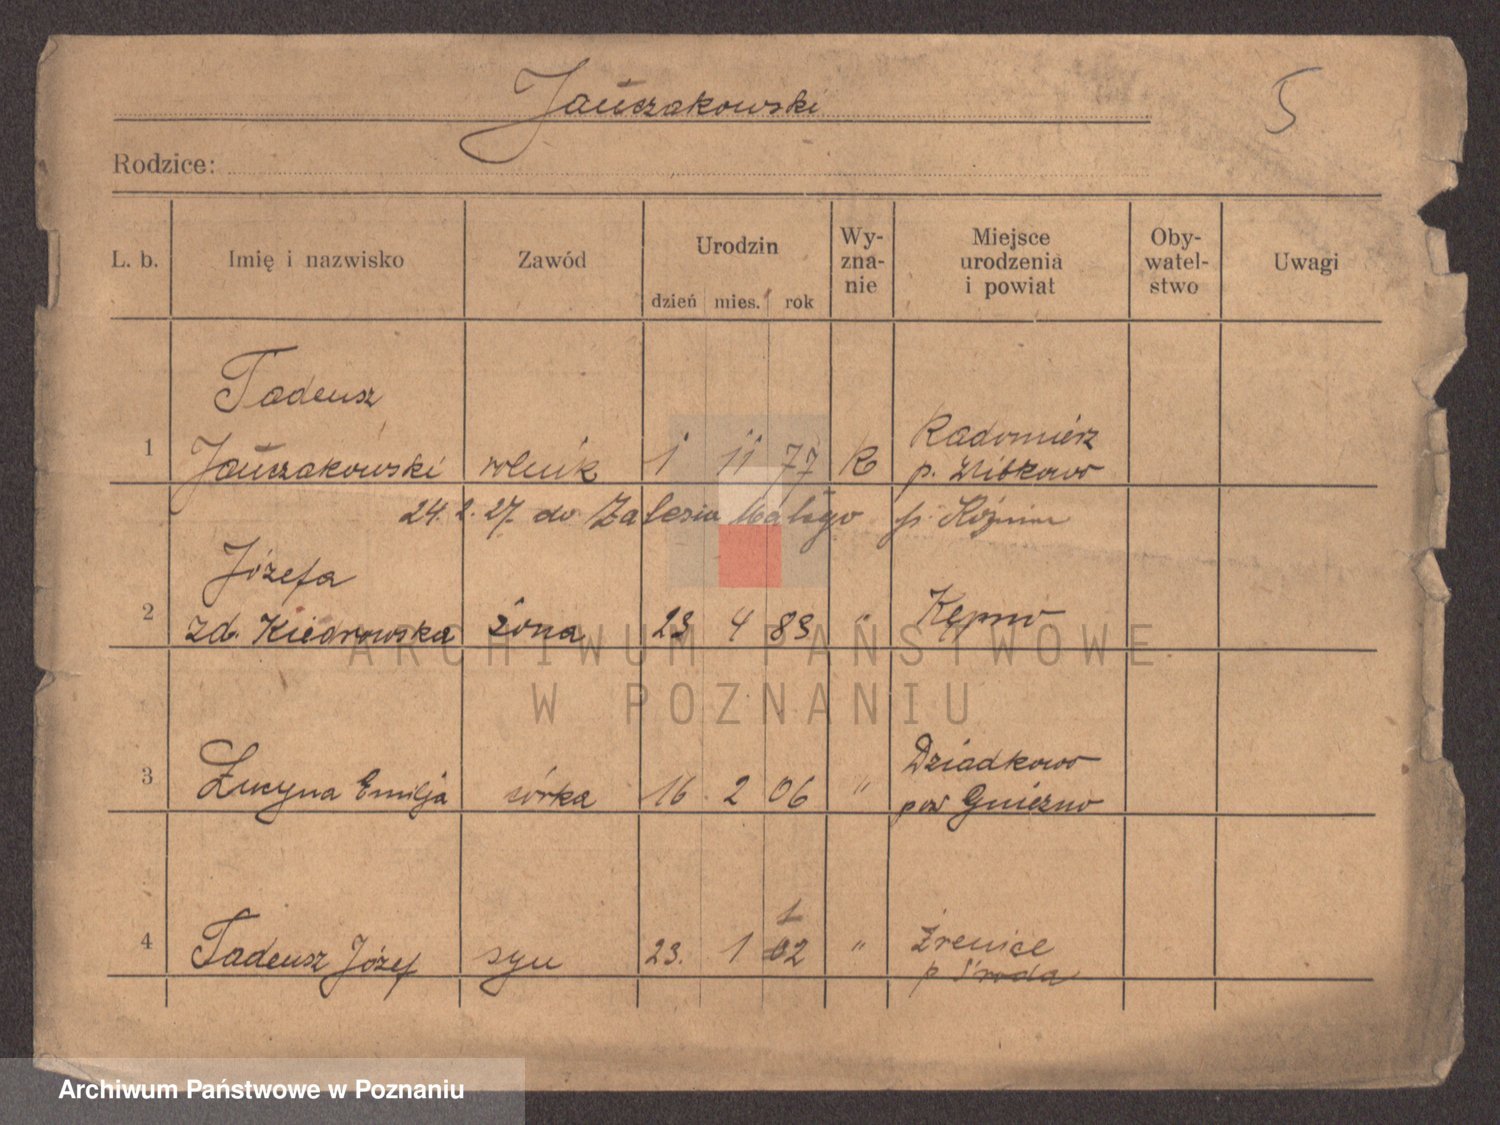 Jańczakowski
5
Rodzice:
L. b. Imię i nazwisko Zawód Urodzin dzień mies. rok Wy-zna-nie Miejsce urodzenia i powiat Oby-watel-stwo Uwagi
Tadeusz
1 Jańczakowski rolnik 1 11 77 R Radomierz
24.2.27. do Zalesia Małego p. Koźmin
Józefa
2 zd. Kiedrowska żona 23 4 83 " Kępno
Dziadkowo
3 Lucyna Emilja córka 16 2 06 " pow Gniezno
1
4 Tadeusz Józef syn 23. 1 02 " Żrenice
p Środa
ARCHIWUM PAŃSTWOWE
W POZNANIU
Archiwum Państwowe w Poznaniu